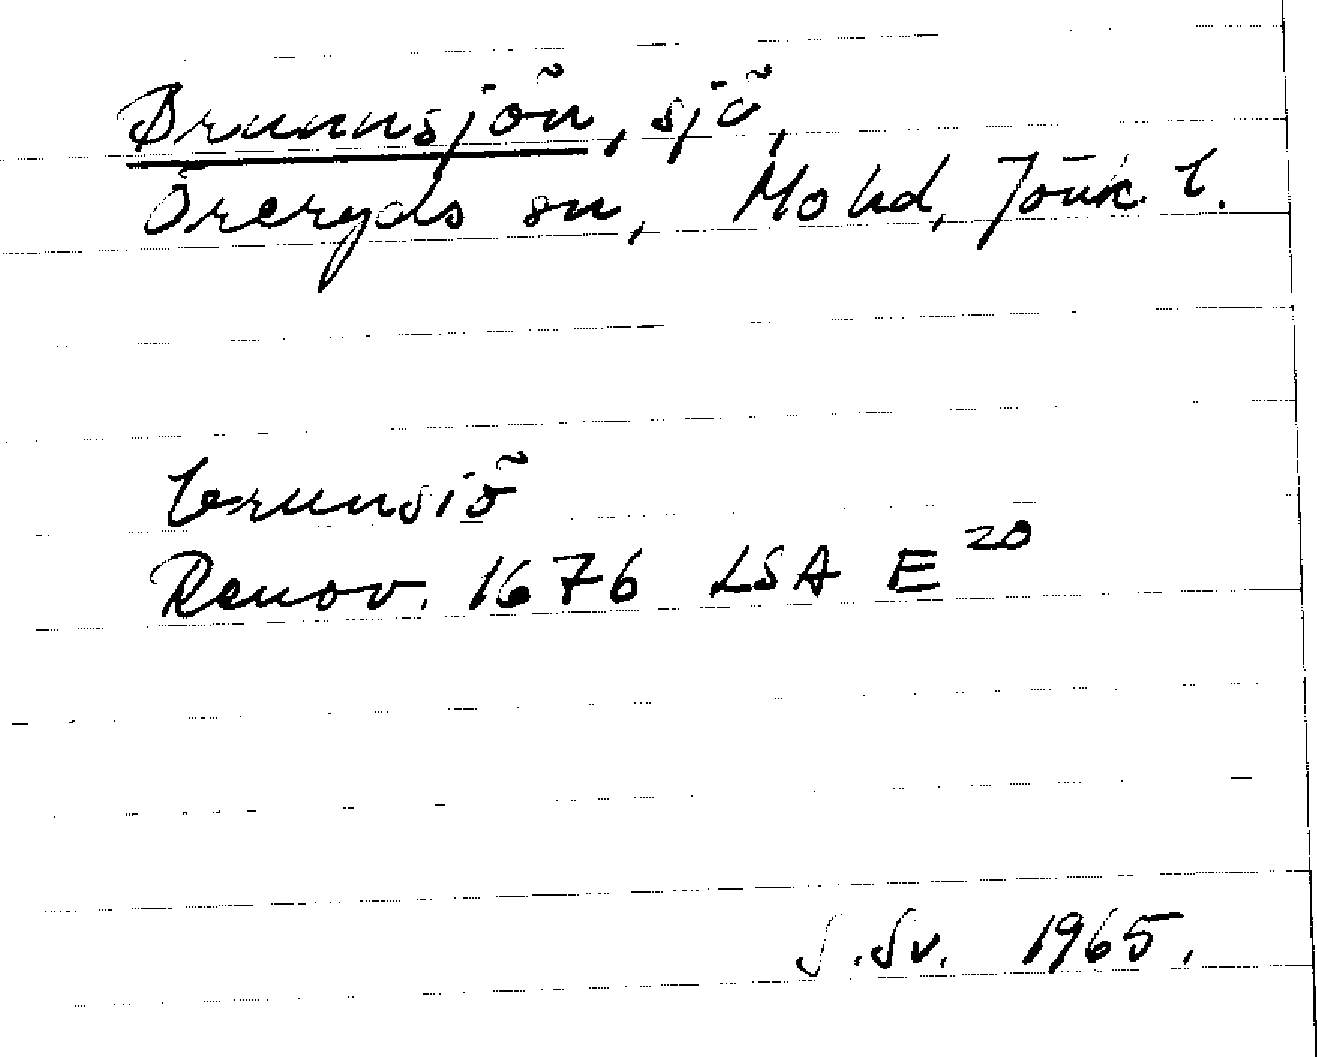 Brunnsjön, sjö,
Öreryds sn, Mo hd, Jönk l.
brunsiö
Renov. 1676 LSA E 20
S. Sv. 1965.